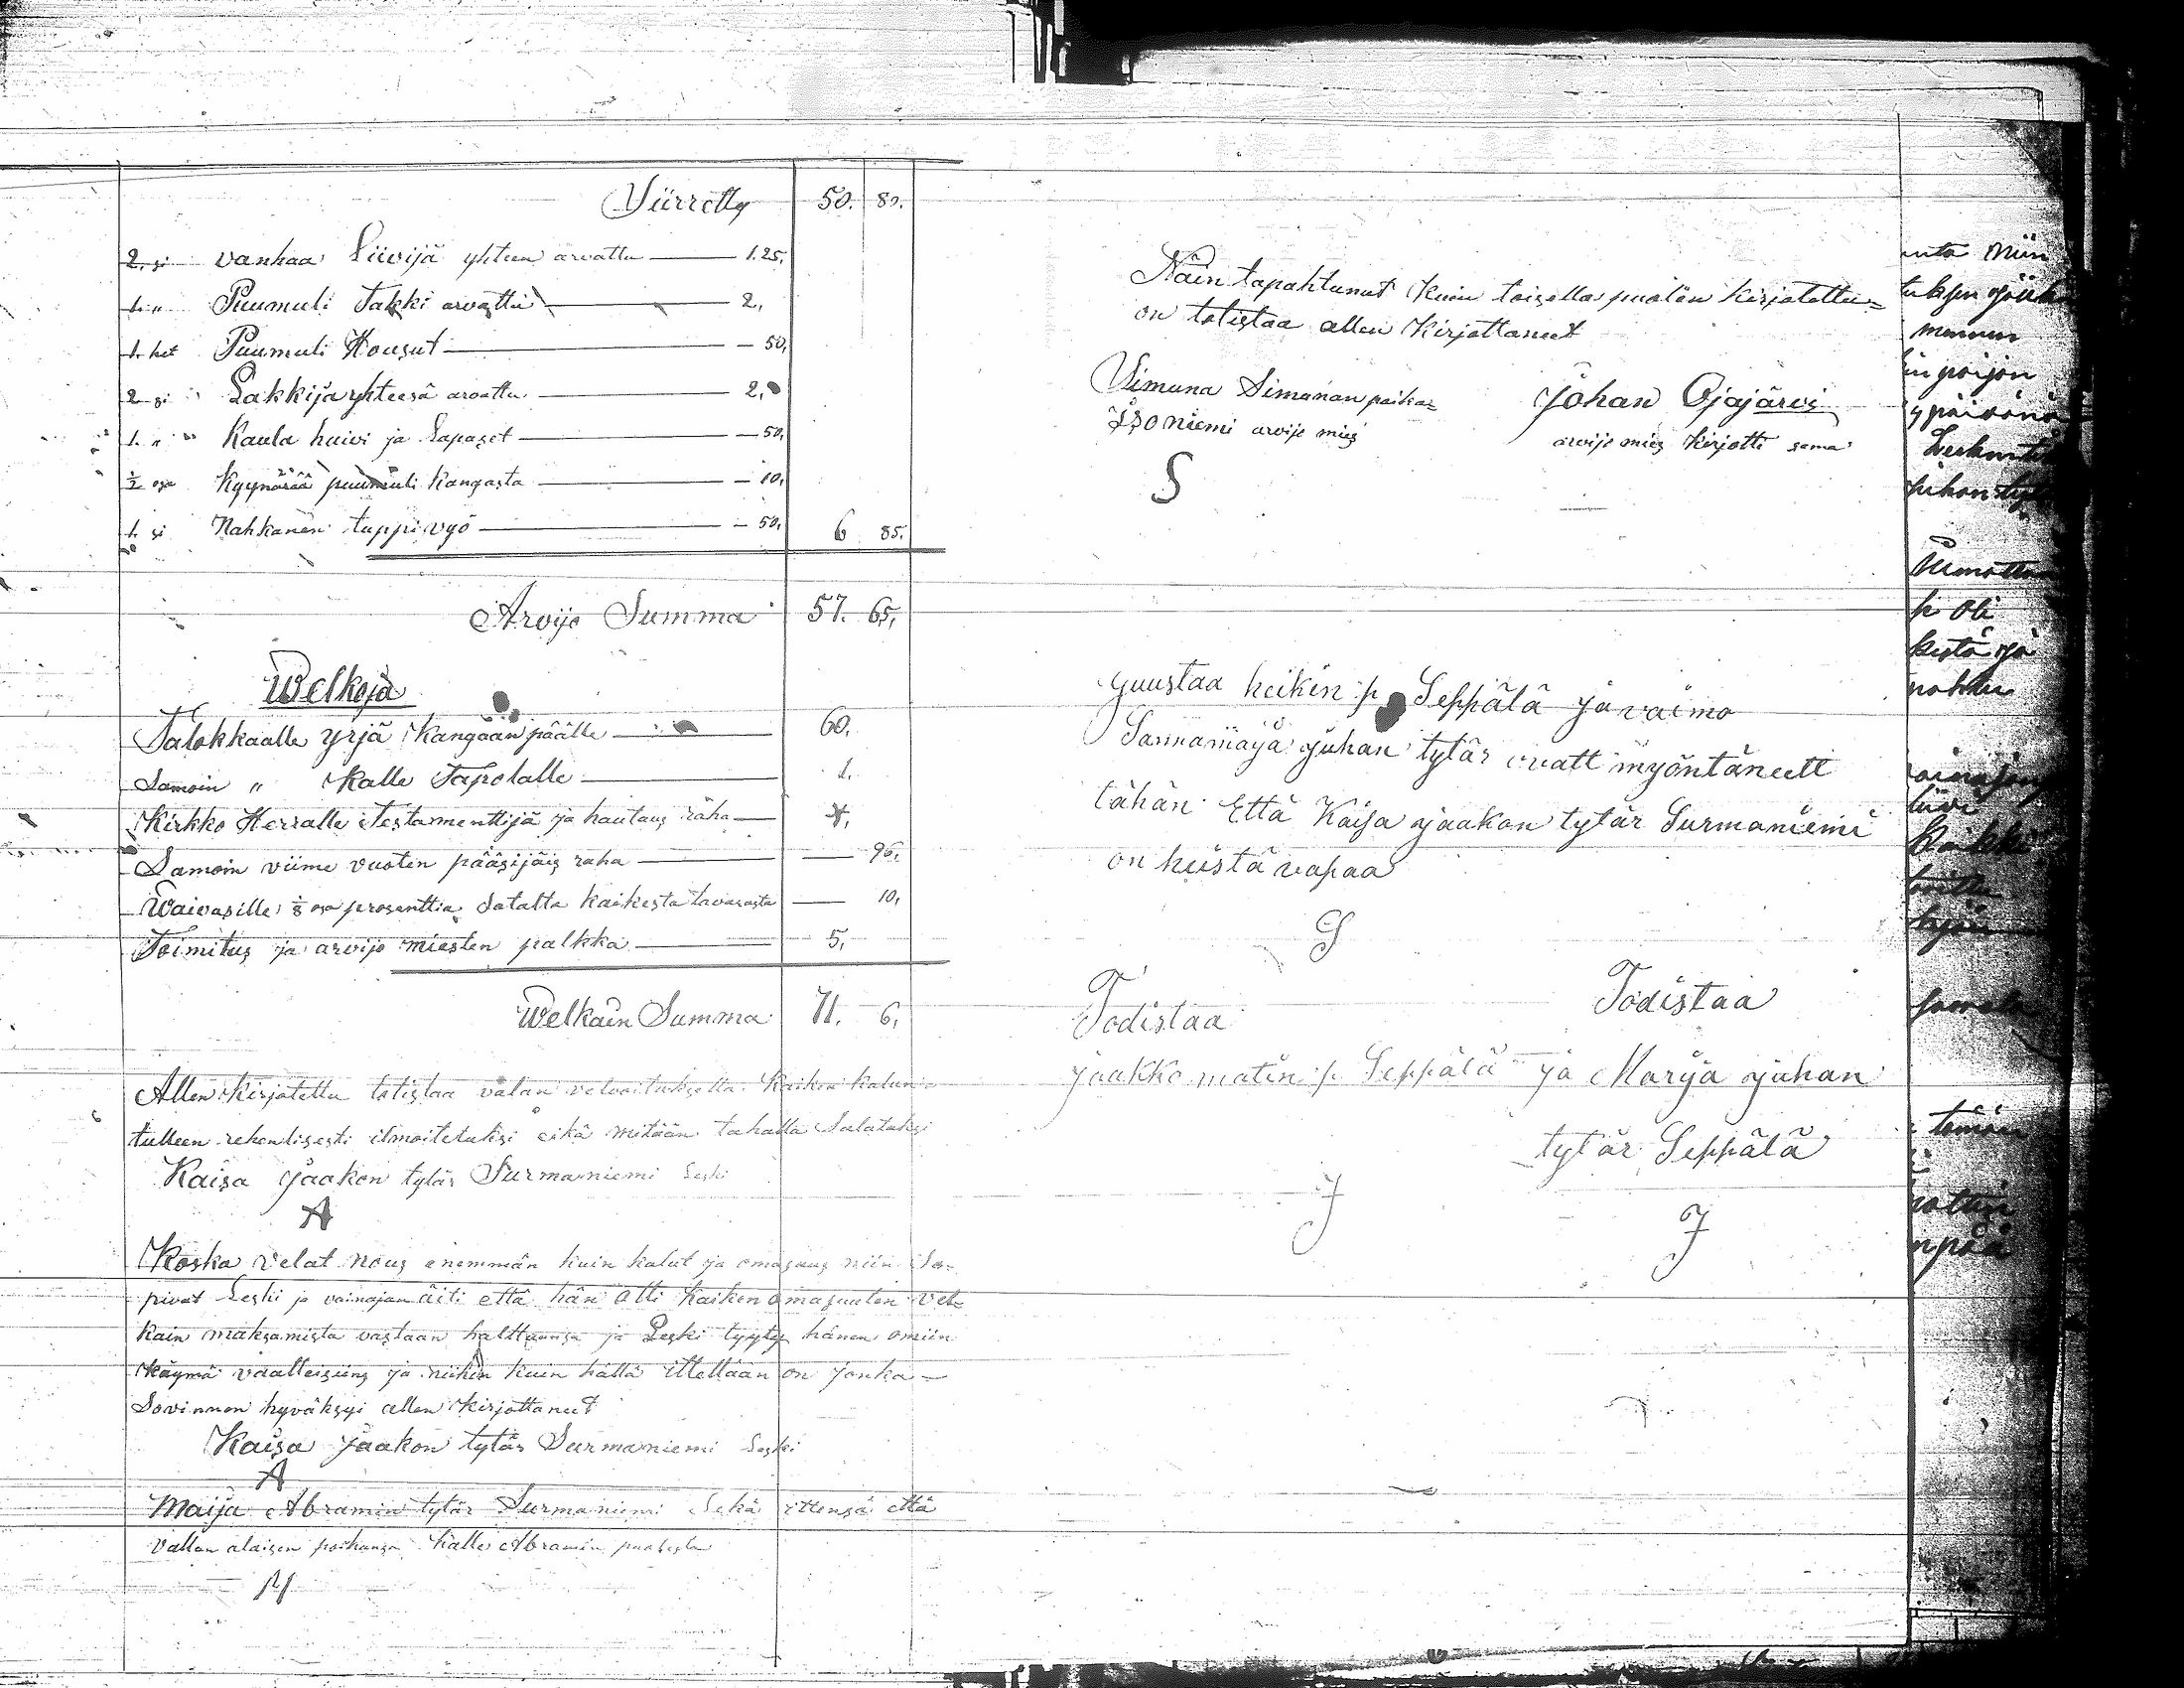 Siirretty 50. 80.
2. si vanhaa Liivijä yhteen arvattu — 1.25.
1. " Puumuli Takki arvattu — 2,
1. het Puumuli Housut — 50,
2 si Lakkija yhteesä arvattu — 2,
1. " Kaula huivi ja Lapaset — 50,
½ osa Kyynärää puumuli Kangasta — 10,
1. si Nahkanen tuppi vyö — 50, 6 85.
Arvijo Summa 57. 65,
Welkoja
Talokkaalle yrjä Kangäänpäälle — 60.
Samoin " Kalle Tapolalle — 1.
Kirkko Herralle Testamenttijä ja hautaus raha — 4,
Samoin viime vuoten pääsijäis raha — 96,
Waivasille ⅛ osa prosenttia Satalta kaikesta tavarasta — 10,
Toimitus ja arvijo miesten palkka — 5,
Welkain Summa 71. 6,
Allen Kirjotettu totistaa valan velvoituksella Kaiken kalun
tulleen rehenlisesti ilmoitetuksi eikä mitään tahalla Salatuksi
Kaisa Jaakon tytär Surmaniemi Leski
A
Koska velat nous enemmän kuin kalut ja omasuus niin So-
pivat Leski ja vainajan äiti että hän otti Kaiken omasuuten vel=
kain maksamista vastaan halttuunsa ja Leski tyyty hänen omiin
Käymä vaatteisiins ja niihin kuin hällä ittellään on Jonka
Sovinnon hyväksyi allen Kirjottaneet
Kaisa Jaakon tytär Surmaniemi Leski
A
Maija Abramin tytär Surmaniemi Sekä ittensä että
vallan alaisen poikansa Kalle Abramin puolesta
M
Näin tapahtunut Kuin toisella puolen kirjotettu=
on totistaa allen Kirjottaneet
Simuna Simunan poika=
Isoniemi arvijo mies
S
Johan Ojajärvi
arvijo mies Kirjotti sama
Juustaa heikin p Seppälä ja vaimo
Sannamaija Juhan tytär ovatt myöntäneett
tähän Että Kaisa Jaakon tytär Surmaniemi
on hiistä vapaa
S
Todistaa Todistaa
Jaakko matin p. Seppälä ja Marija Juhan
tytär Seppälä
J J
mennen
poijon
h Oli